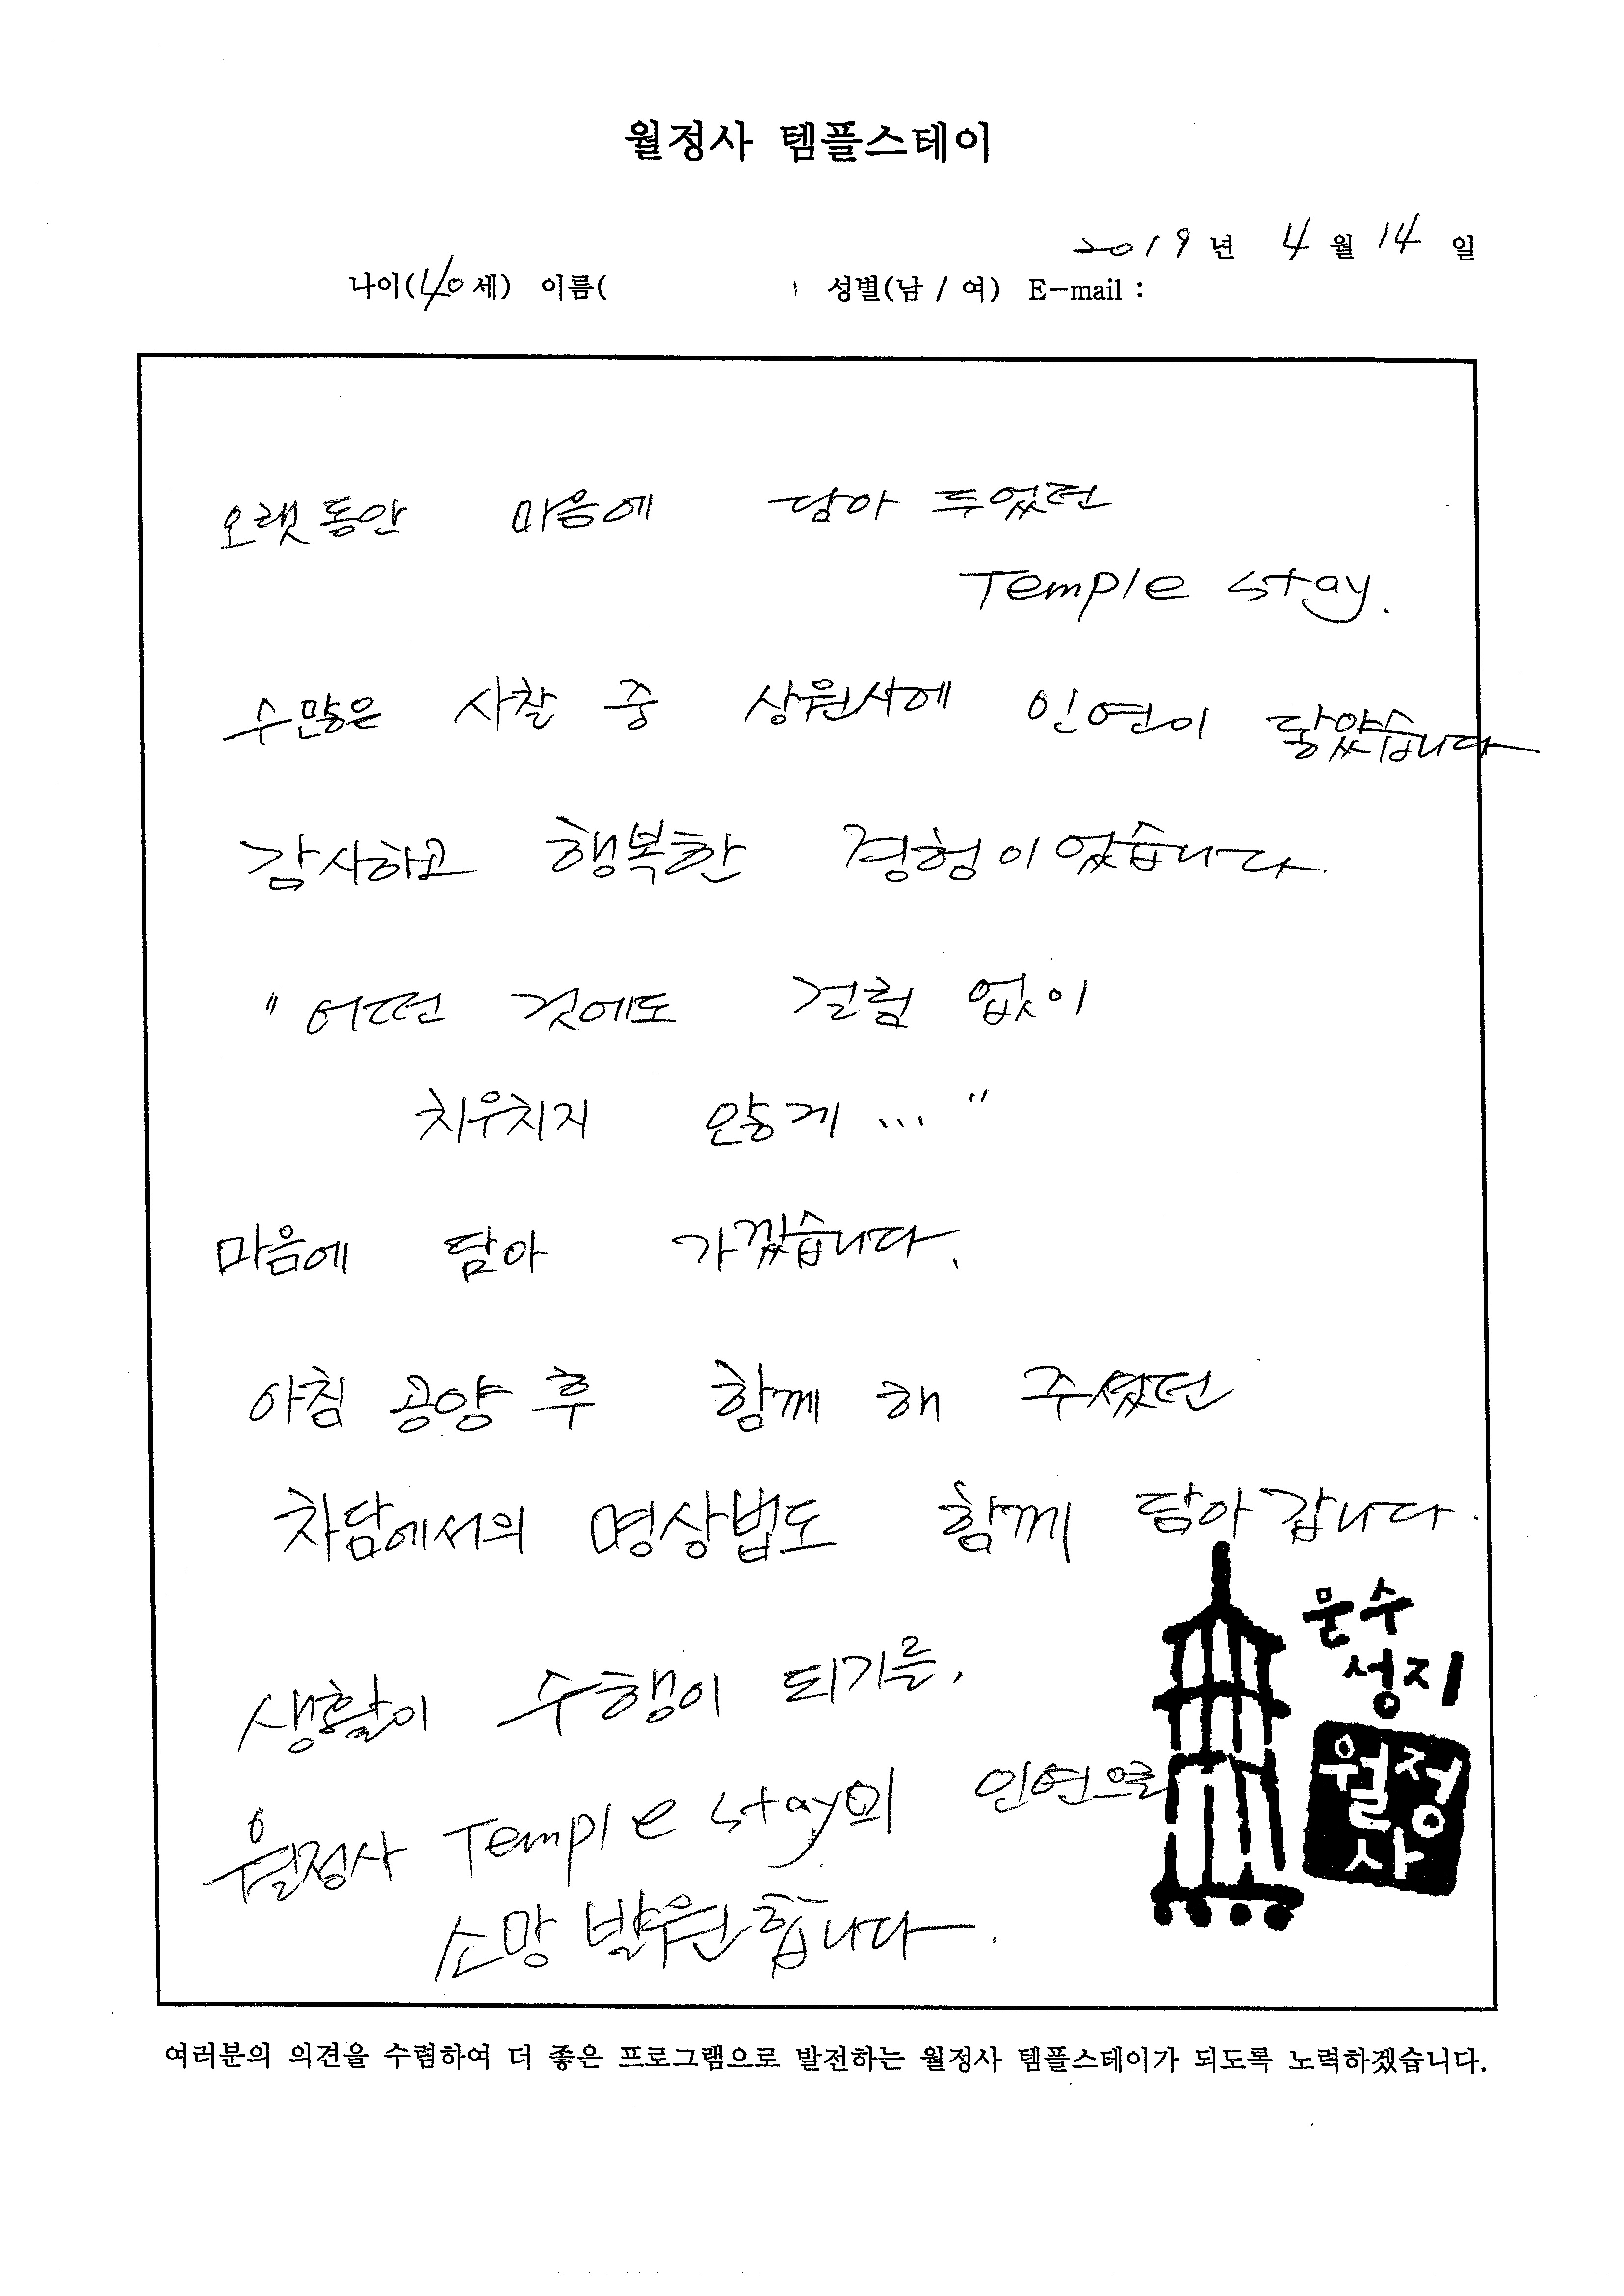 월정사 템플스테이
2019년 4월 14일
나이(40세) 이름( ) 성별(남 / 여) E-mail :
오랫동안 마음에 담아 두었던
Temple stay.
수많은 사찰 중 상원사에 인연이 닿았습니다
감사하고 행복한 경험이었습니다.
"어떤 것에도 걸림 없이
치우치지 않게 ..."
마음에 담아 가겠습니다.
아침 공양 후 함께 해 주셨던
차담에서의 명상법도 함께 담아 갑니다.
생활이 수행이 되기를,
월정사 Temple stay의 인연으로
소망 발원합니다.
문수
성지
월정
사
여러분의 의견을 수렴하여 더 좋은 프로그램으로 발전하는 월정사 템플스테이가 되도록 노력하겠습니다.